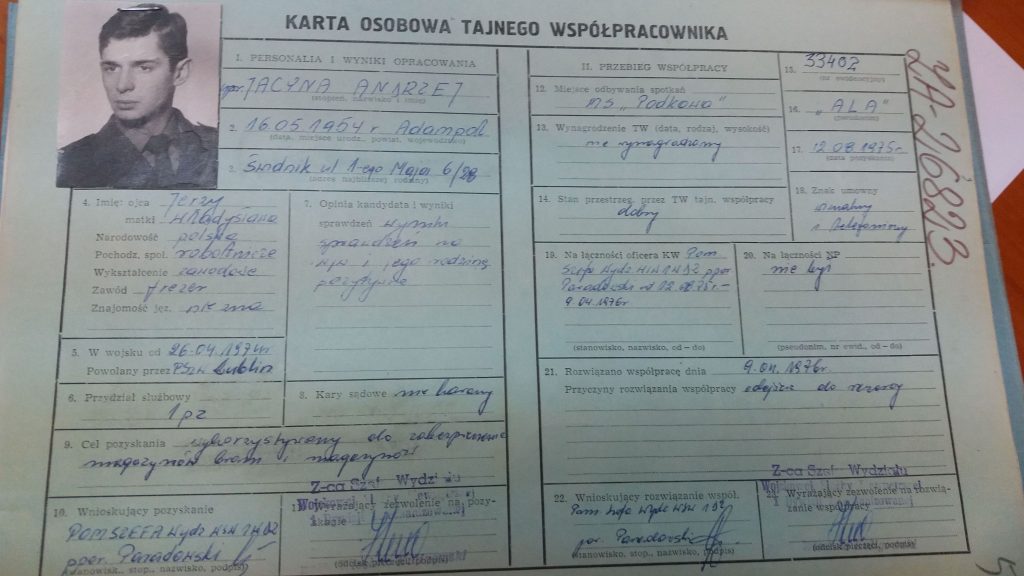 KARTA OSOBOWA TAJNEGO WSPÓŁPRACOWNIKA
LH-2/6823.
I. PERSONALIA I WYNIKI OPRACOWANIA
1. JACYNA ANDRZEJ
(stopień, nazwisko i imię)
2. 16.05.1954 r. Adampol
(data, miejsce urodz., powiat, województwo)
3. Świdnik ul 1-ego Maja 6/28
(adres najbliższej rodziny)
4. Imię: ojca Jerzy
matki Władysława
Narodowość polska
Pochodz. społ. robotnicze
Wykształcenie zawodowe
Zawód frezer
Znajomość jęz. nie zna
5. W wojsku od 26.04.1974r
Powołany przez Lublin
6. Przydział służbowy
1 pz
7. Opinia kandydata i wyniki
sprawdzeń wyniki
sprawdzeń na
i jego rodzinę
pozytywne
8. Kary sądowe nie karany
9. Cel pozyskania wykorzystywany do zabezpieczenia
magazynów broni i
10. Wnioskujący pozyskanie
POM SZEFA Wydz WSW
ppor. Paradowski
(stanowisk., stop., nazwisko, podpis)
Z-ca Szef Wydziału
11. Wyrażający zezwolenie na pozyskanie
(odcisk pieczęci, podpis)
II. PRZEBIEG WSPÓŁPRACY
12. Miejsce odbywania spotkań
MS "Podkowa"
13. Wynagrodzenie TW (data, rodzaj, wysokość)
nie wynagradzany
14. Stan przestrzeg. przez TW tajn. współpracy
dobry
15. 33402
(nr ewidencyjny)
16. "ALA"
(pseudonim)
17. 12.08.1975r.
(data pozyskania)
18. Znak umowny
19. Na łączności oficera KW Pom
Szefa Wydz WSW ppor
Paradowski od 12.08.75r-
9.04.1976r.
(stanowisko, nazwisko, od - do)
20. Na łączności NP
nie był
(pseudonim, nr ewid., od - do)
21. Rozwiązano współpracę dnia 9.04.1976r.
Przyczyny rozwiązania współpracy odejście do rezerwy
22. Wnioskujący rozwiązanie współ.
Pom Szefa Wydz WSW
por. Paradowski
(stanowisko, stop., nazwisko, podpis)
Z-ca Szef Wydziału
23. Wyrażający zezwolenie na rozwiązanie współpracy
(odcisk pieczęci, podpis)
5